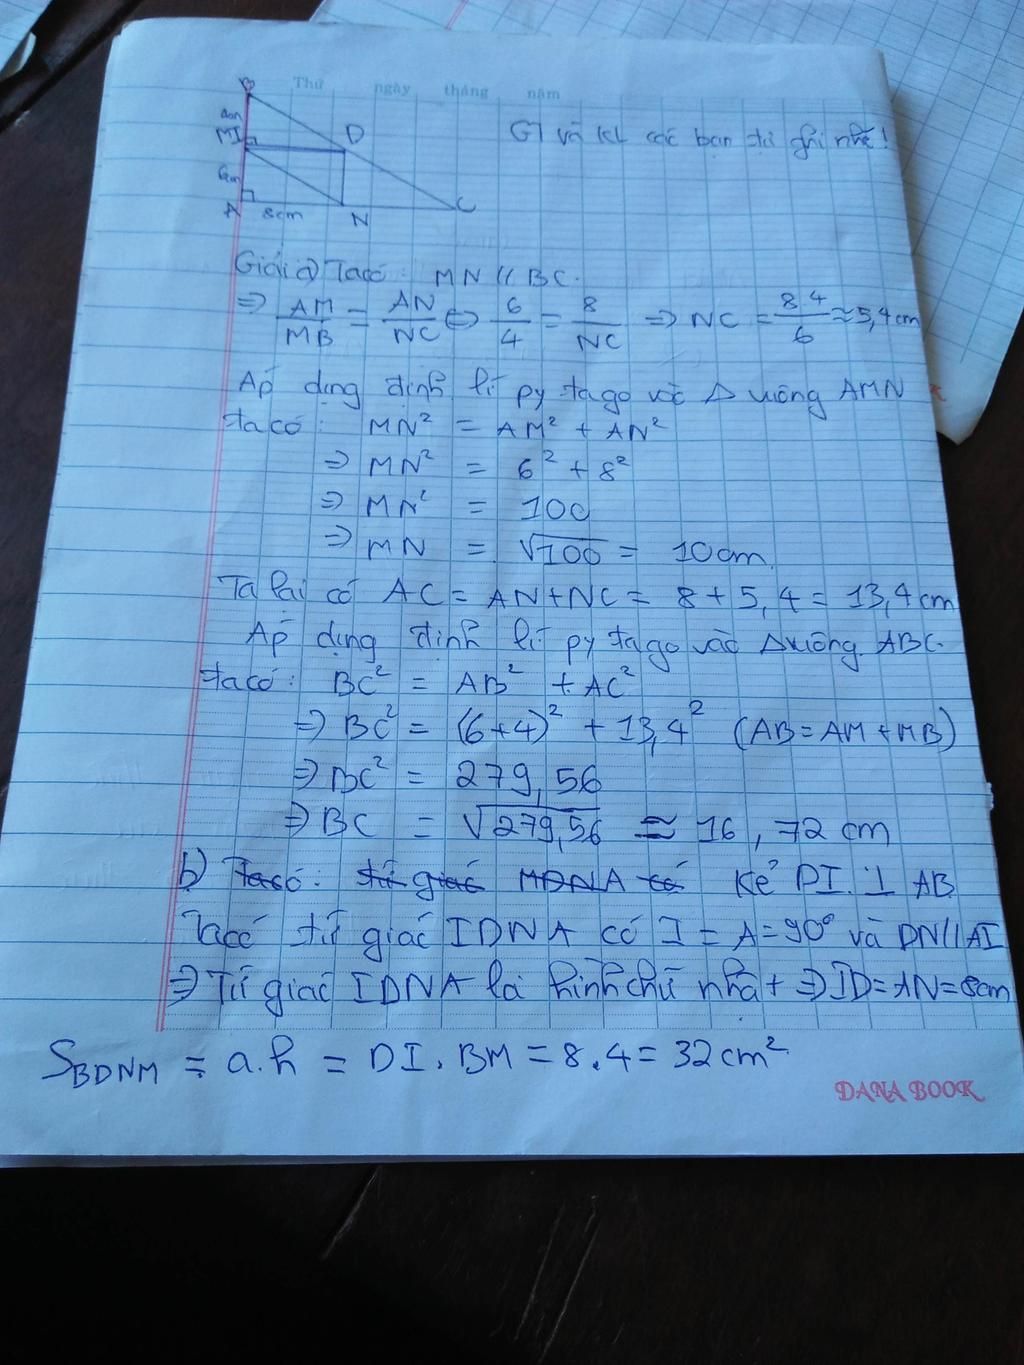 Thứ ngày tháng năm
B
4cm
MI
D
GT và KL các bạn tự ghi nhé!
6cm
A 8cm N C
Giải a) Ta có: MN // BC.
⇒ AM/MB = AN/NC ⇔ 6/4 = 8/NC ⇒ NC = 8 4/6 ≈ 5,4 cm
Áp dụng định lí py ta go vào Δ vuông AMN
ta có: MN² = AM² + AN²
⇒ MN² = 6² + 8²
⇒ MN² = 100
⇒ MN = √100 = 10cm
Ta lại có AC = AN+NC = 8 + 5,4 = 13,4 cm
Áp dụng định lí py ta go vào Δ vuông ABC.
ta có: BC² = AB² + AC²
⇒ BC² = (6+4)² + 13,4² (AB = AM + MB)
⇒ BC² = 279,56
⇒ BC = √279,56 ≈ 16,72 cm
b) Ta có: tứ giác MDNA có Kẻ DI ⊥ AB
Ta có tứ giác IDNA có I = A = 90° và DN // AI
⇒ Tứ giác IDNA là hình chữ nhật ⇒ ID = AN = 8cm
S_BDNM = a.h = DI . BM = 8.4 = 32 cm²
DANA BOOK